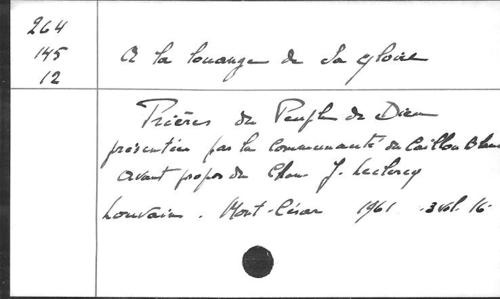 264
145
12
A la louange de Sa gloire
Prières du Peuple de Dieu
présentées par la communauté du Caillou Blanc
avant propos du Chan J. Leclercq
Louvain. Mont-César 1961 .3vol. 16-